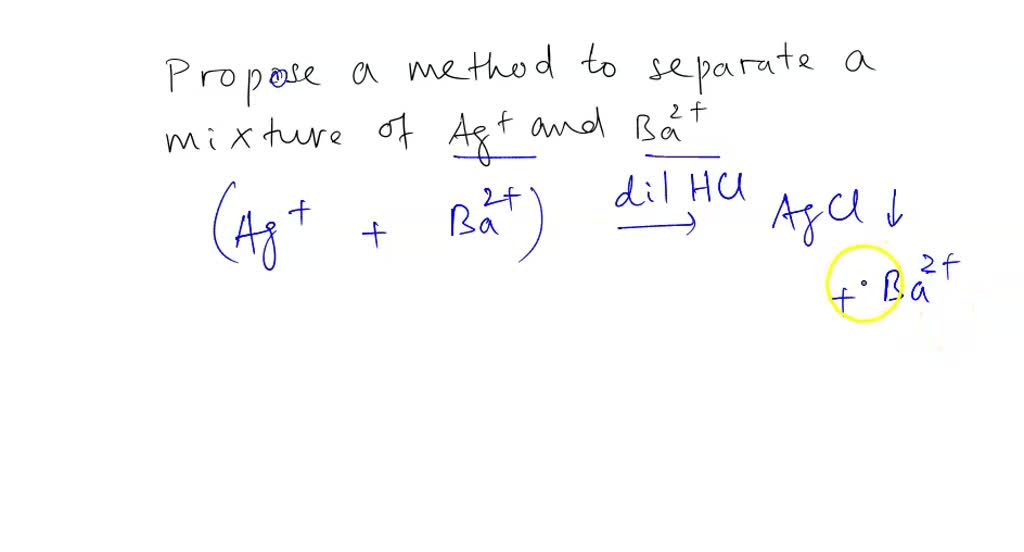 Propose a method to separate a
mixture of Ag⁺ and Ba²⁺
(Ag⁺ + Ba²⁺) dil HCl → AgCl ↓
+ Ba²⁺